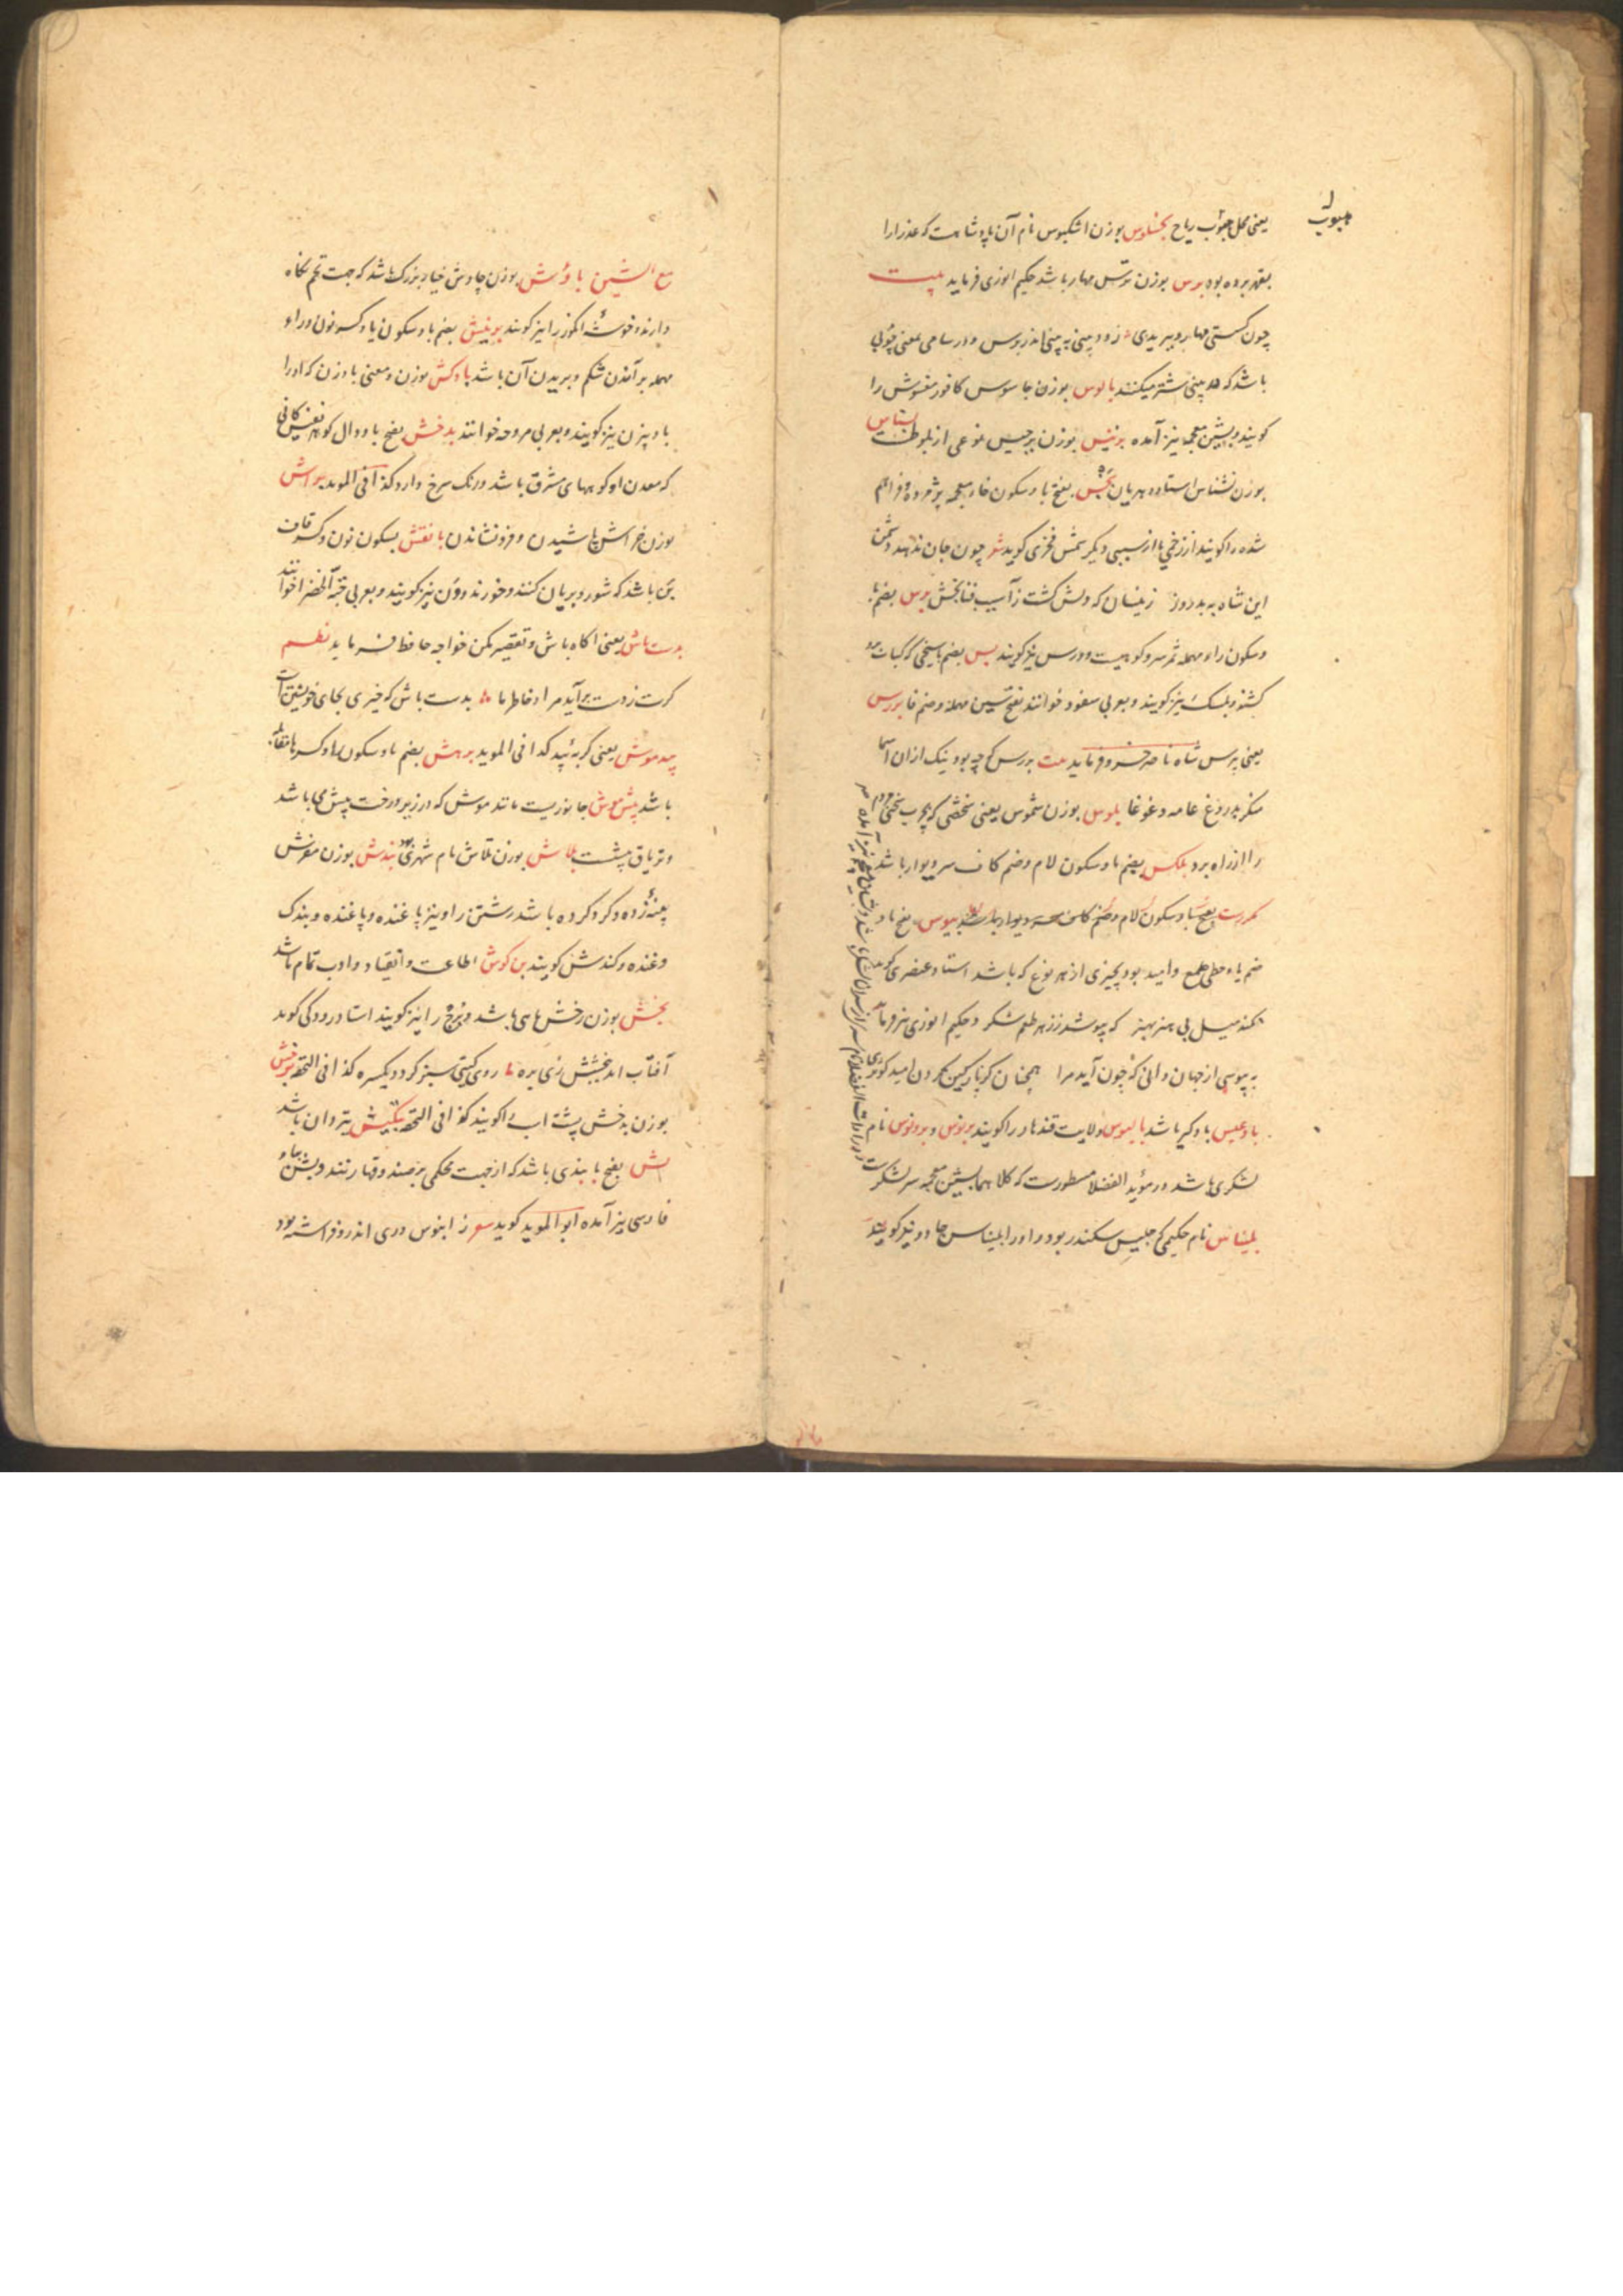 یعنی محل هبوب ریاح بخسلوس بوزن اشکبوس نام آن پادشاهست که عذرا را
هبوب
بقهر برده بود برس بوزن ترس مهار باشد حکیم انوری فرماید بیت
چون کستی مهار و ببریدی زود بینی به بینی اندر برس و در سامی بمعنی چوبی
باشد که در بینی شتر میکنند بالوس بوزن جاسوس کافور مغشوش را
کویند و بشین معجمه نیز آمده برنیس بوزن برجیس نوعی از بلوطست بسناس
بوزن نشناس استاده بریان بخس بفتح با و سکون خاء معجمه پژمرده و فراهم
شده را کویند از زخمی یا از سببی دیکر شمس فخری کوید شعر چون جان ندهد دشمن
این شاه به بد روز زینسان که دلش کشت ز آسیب فنا بخش برس بضم با
و سکون راء مهمله ثمر سرو کوهیست و ورس نیز کویند بس بضم با سیخی که کباب برو
کشند و بلسک نیز کویند و بعربی سفود خوانند بفتح سین مهمله و ضم فا بررس
یعنی بپرس شاه ناصر خسرو فرماید بیت بررس که چه بود نیک ازان اسما
منکر بدروغ عامه و غوغا بلوس بوزن شموس یعنی شخصی که بچرب سخنی مردم
را از راه برد بلکس بضم با و سکون لام و ضم کاف سر دیوار باشد
بفتح با و سکون لام و ضم کاف بیوس بفتح با و
ضم یاء حطی طمع و امید بود بچیزی از هر نوع که باشد استاد عنصری کوید
نکند میل بی هنر بهنر که بیوسد ز زهر طعم شکر و حکیم انوری نیز فرماید
به بیوسی از جهان دانی که چون آید مرا همچنان کز پارکین کردن امید کوثری
بادغیس بادکیر باشد بالیوس ولایت قندهار را کویند برنوس و برونوس نام
لشکری باشد در مؤید الفضلا مسطورست که کلاهما بشین معجمه سر لشکر
بلیناس نام حکیمی که جلیس سکندر بود و او را بلیناس جادو نیز کویند
مع الشین باوش بوزن چاوش خیار بزرک باشد که جهت تخم نکاه
دارند و خوشه انکور را نیز کویند برینش بضم با و سکون یا و کسر نون و راء
مهمله بر آمدن شکم و بریدن آن باشد بادکش بوزن و معنی بادزن که او را
بادبیزن نیز کویند و بعربی مروحه خوانند بدخش بفتح با و دال کوهر نفیس کانی
که معدن او کوههای مشرق باشد و رنک سرخ دارد کذا فی الموید براش
بوزن خراش پاشیدن و فرو نشاندن بانقش بسکون نون و کسر قاف
بن باشد که شور و بریان کنند و خورند و ون نیز کویند و بعربی حبة الخضرا خوانند
بدست باش یعنی اکاه باش و تقصیر مکن خواجه حافظ فرماید نظم
کرت ز دست برآید مراد خاطر ما بدست باش که خیری بجای خویشتن است
بید موش یعنی کربه بید کذا فی الموید برهش بضم با و سکون را و کسر ها
باشد بیش موش جانوریست مانند موش که در زیر درخت بیش می باشد
و تریاق بیشت بلاش بوزن تلاش نام شهری بود بندش بوزن مفرش
پنبه زده و کرد کرده باشد رشتن را و نیز پاغنده و پاغنده و بندک
و غنده و کندش کویند بن کوش اطاعت و انقیاد و ادب تمام باشد
بخش بوزن رخش ماهی باشد و برج را نیز کویند استاد رودکی کوید
آفتاب اید ببخشش زی بره روی کیتی سبز کردد یکسره کذا فی التحفه برخش
بوزن بدخش پشت اسب را کویند کذا فی التحفه بتکیش تیردان باشد
بش بفتح با بندی باشد که از جهت محکمی بر صندوقها زنند و بش بباء
فارسی نیز آمده ابو الموید کوید شعر ز ابنوس دری اندر و فراشته بود